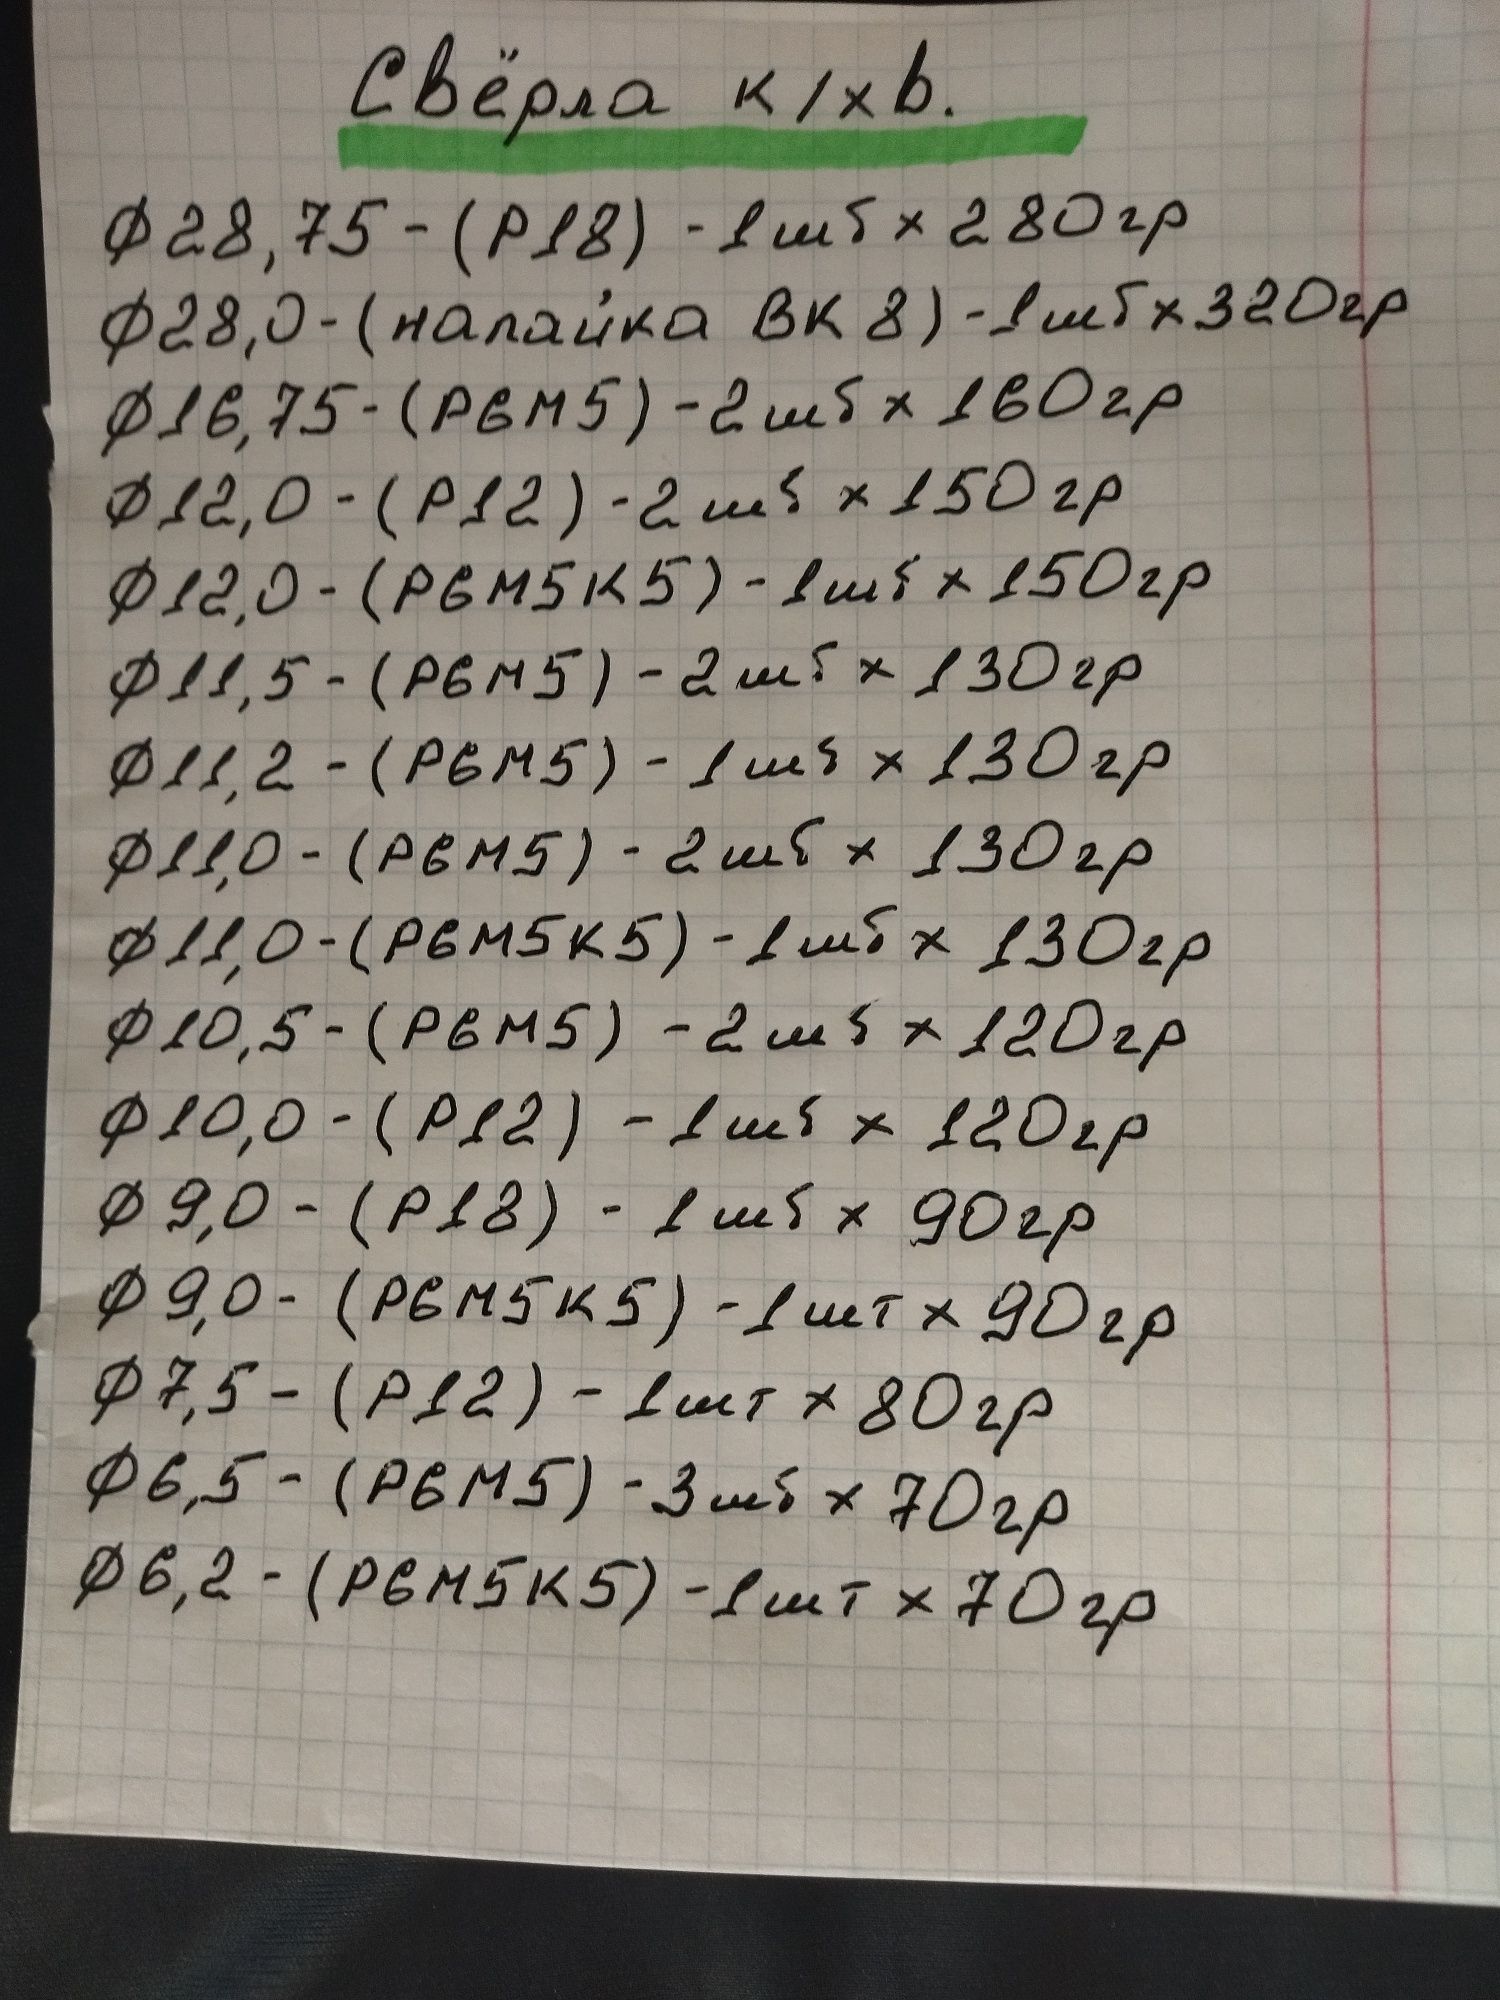 Свёрла к/хв.
Ф28,75-(Р18) -1шт×280гр
Ф28,0-(напайка ВК8)-1шт×320гр
Ф16,75-(Р6М5)-2шт×160гр
Ф12,0-(Р12)-2шт×150гр
Ф12,0-(Р6М5К5)-1шт×150гр
Ф11,5-(Р6М5)-2шт×130гр
Ф11,2-(Р6М5)-1шт×130гр
Ф11,0-(Р6М5)-2шт×130гр
Ф11,0-(Р6М5К5)-1шт×130гр
Ф10,5-(Р6М5)-2шт×120гр
Ф10,0-(Р12)-1шт×120гр
Ф9,0-(Р18)-1шт×90гр
Ф9,0-(Р6М5К5)-1шт×90гр
Ф7,5-(Р12)-1шт×80гр
Ф6,5-(Р6М5)-3шт×70гр
Ф6,2-(Р6М5К5)-1шт×70гр